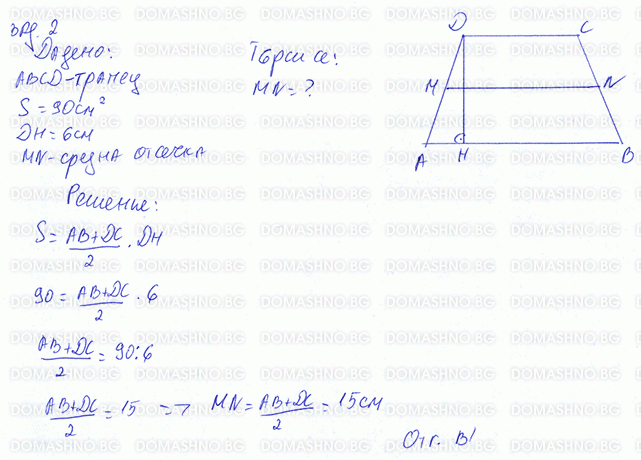 зад. 2
Дадено:
ABCD-трапец
S = 90см²
DH = 6см
MN-средна отсечка
Търси се:
MN = ?
D C
M N
A H B
Решение:
S = (AB+DC)/2 . DH
90 = (AB+DC)/2 . 6
(AB+DC)/2 = 90:6
(AB+DC)/2 = 15 => MN = (AB+DC)/2 = 15см
Отг. В/
DOMASHNO.BG